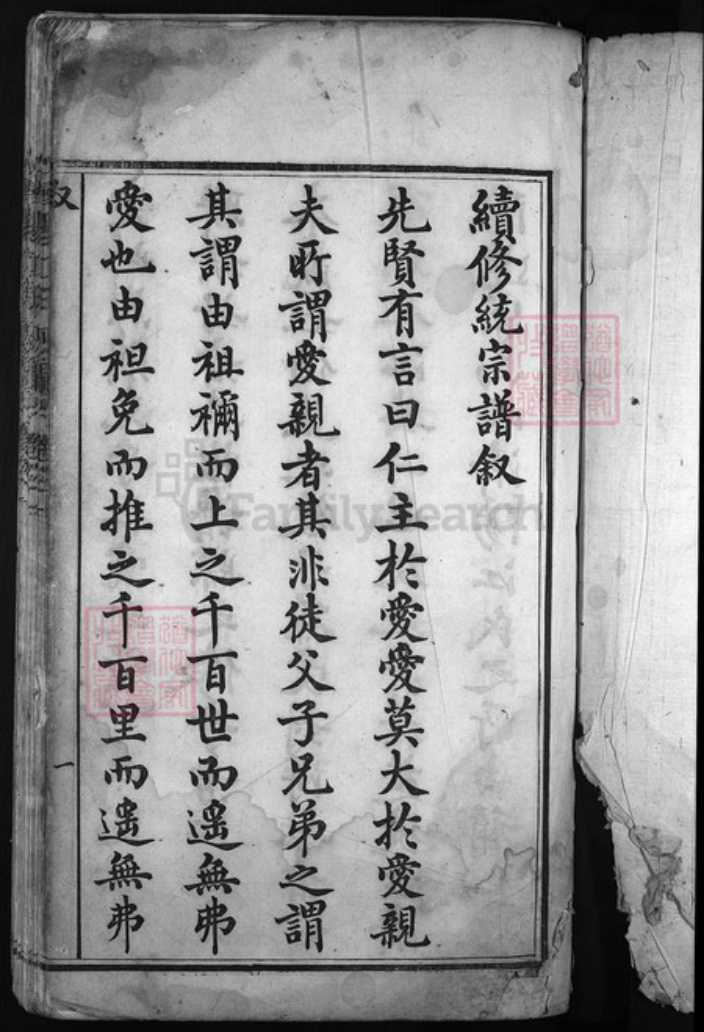 續修統宗譜叙
先賢有言曰仁主於愛愛莫大於愛親
夫所謂愛親者其非徒父子兄弟之謂
其謂由祖禰而上之千百世而遙無弗
愛也由袒免而推之千百里而遙無弗
叙
一
FamilySearch